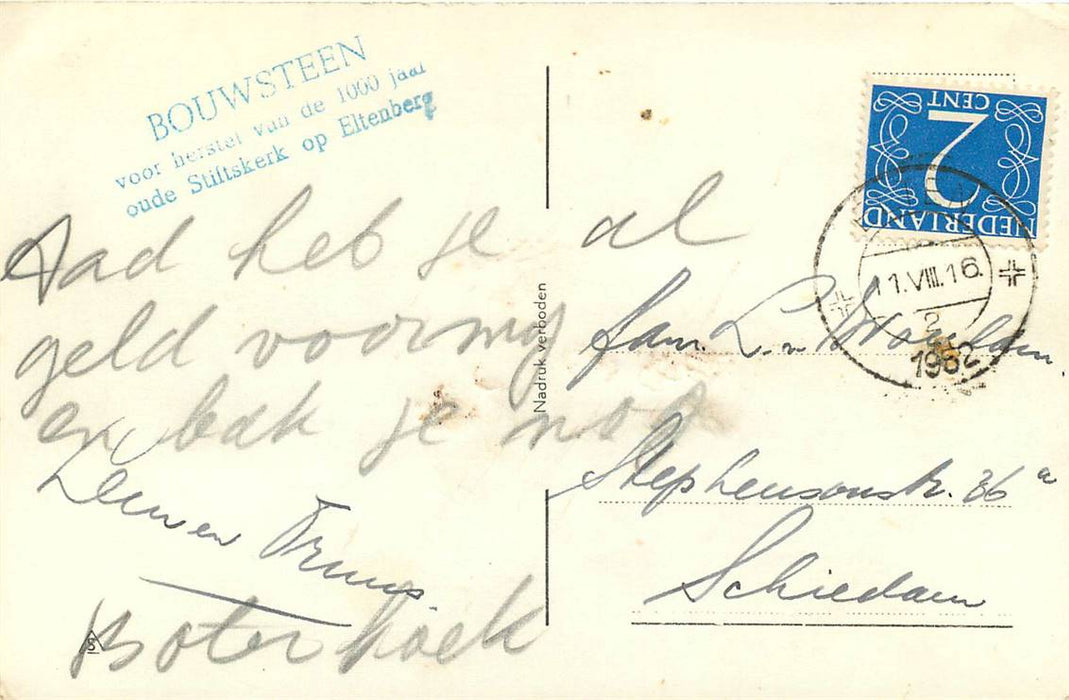 BOUWSTEEN
voor herstel van de 1000 jaar
oude Stiftskerk op Eltenberg
Aad heb je al
geld voor mij
en bak je nog
Boterkoek
en Truus.
Nadruk verboden
CENT
2
NEDERLAND
11.VIII.16
2
1952
fam. L. v.
Stephensonstr. 36a
Schiedam
S